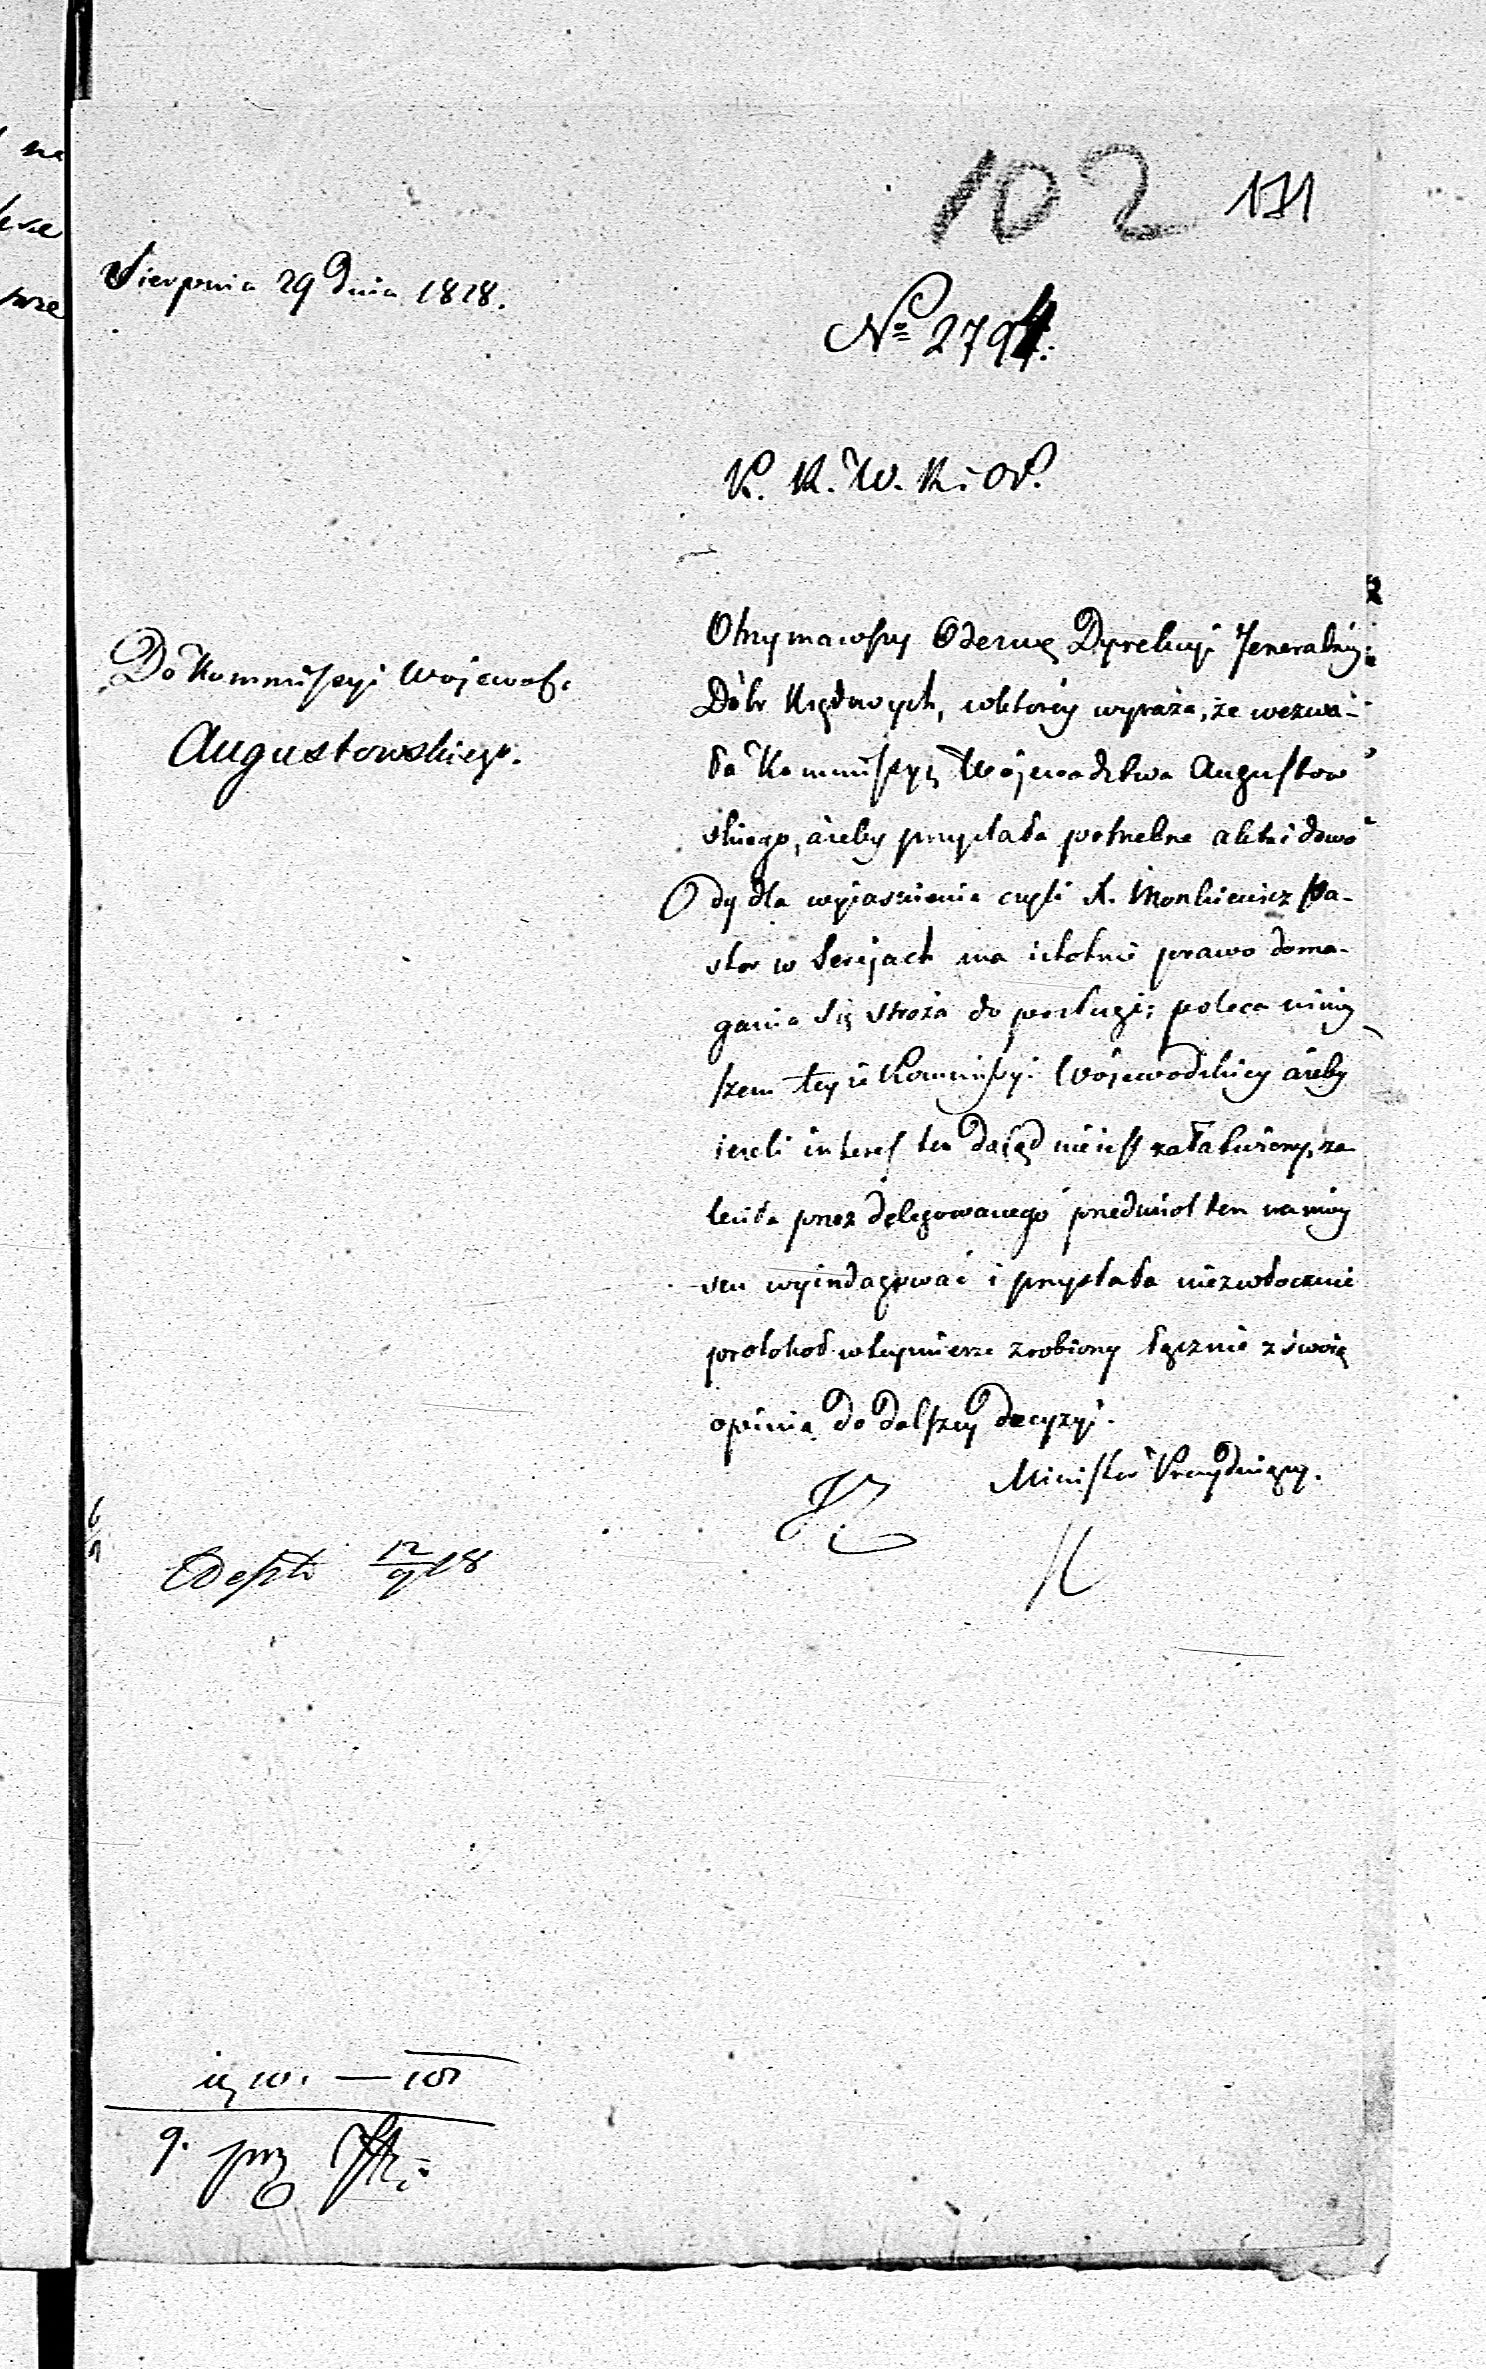 102 171
Sierpnia 29 Dnia 1818.
No 2794.
K. R. W. R. i O. P.
Do Kommissyi Wojewod.
Augustowskiego.
Otrzymawszy Odezwę Dyrekcyi Jeneralney
Dóbr Rządowych, w którey wyraża, że wezwa-
ła Kommissyą Województwa Augustow
skiego, ażeby przysłała potrzebne akta i dowo
dy dla wyjasnienia czyli X. Monkiewicz Pa-
stor w Serejach ma istotnie prawo doma-
gania się stroża do posługi; poleca niniey
szem teyże Kommissyi Wojewódzkiey ażeby
ieżeli interes ten dotąd nie iest załatwiony, za
leciła przez delegowanego przedmiot ten na miey
scu wyindagować i przysłała niezwłocznie
protokoł w tey mierze zrobiony łącznie z swoią
opinią do dalszey decyzyi.
Minister Prezyduiący.
12/9 18